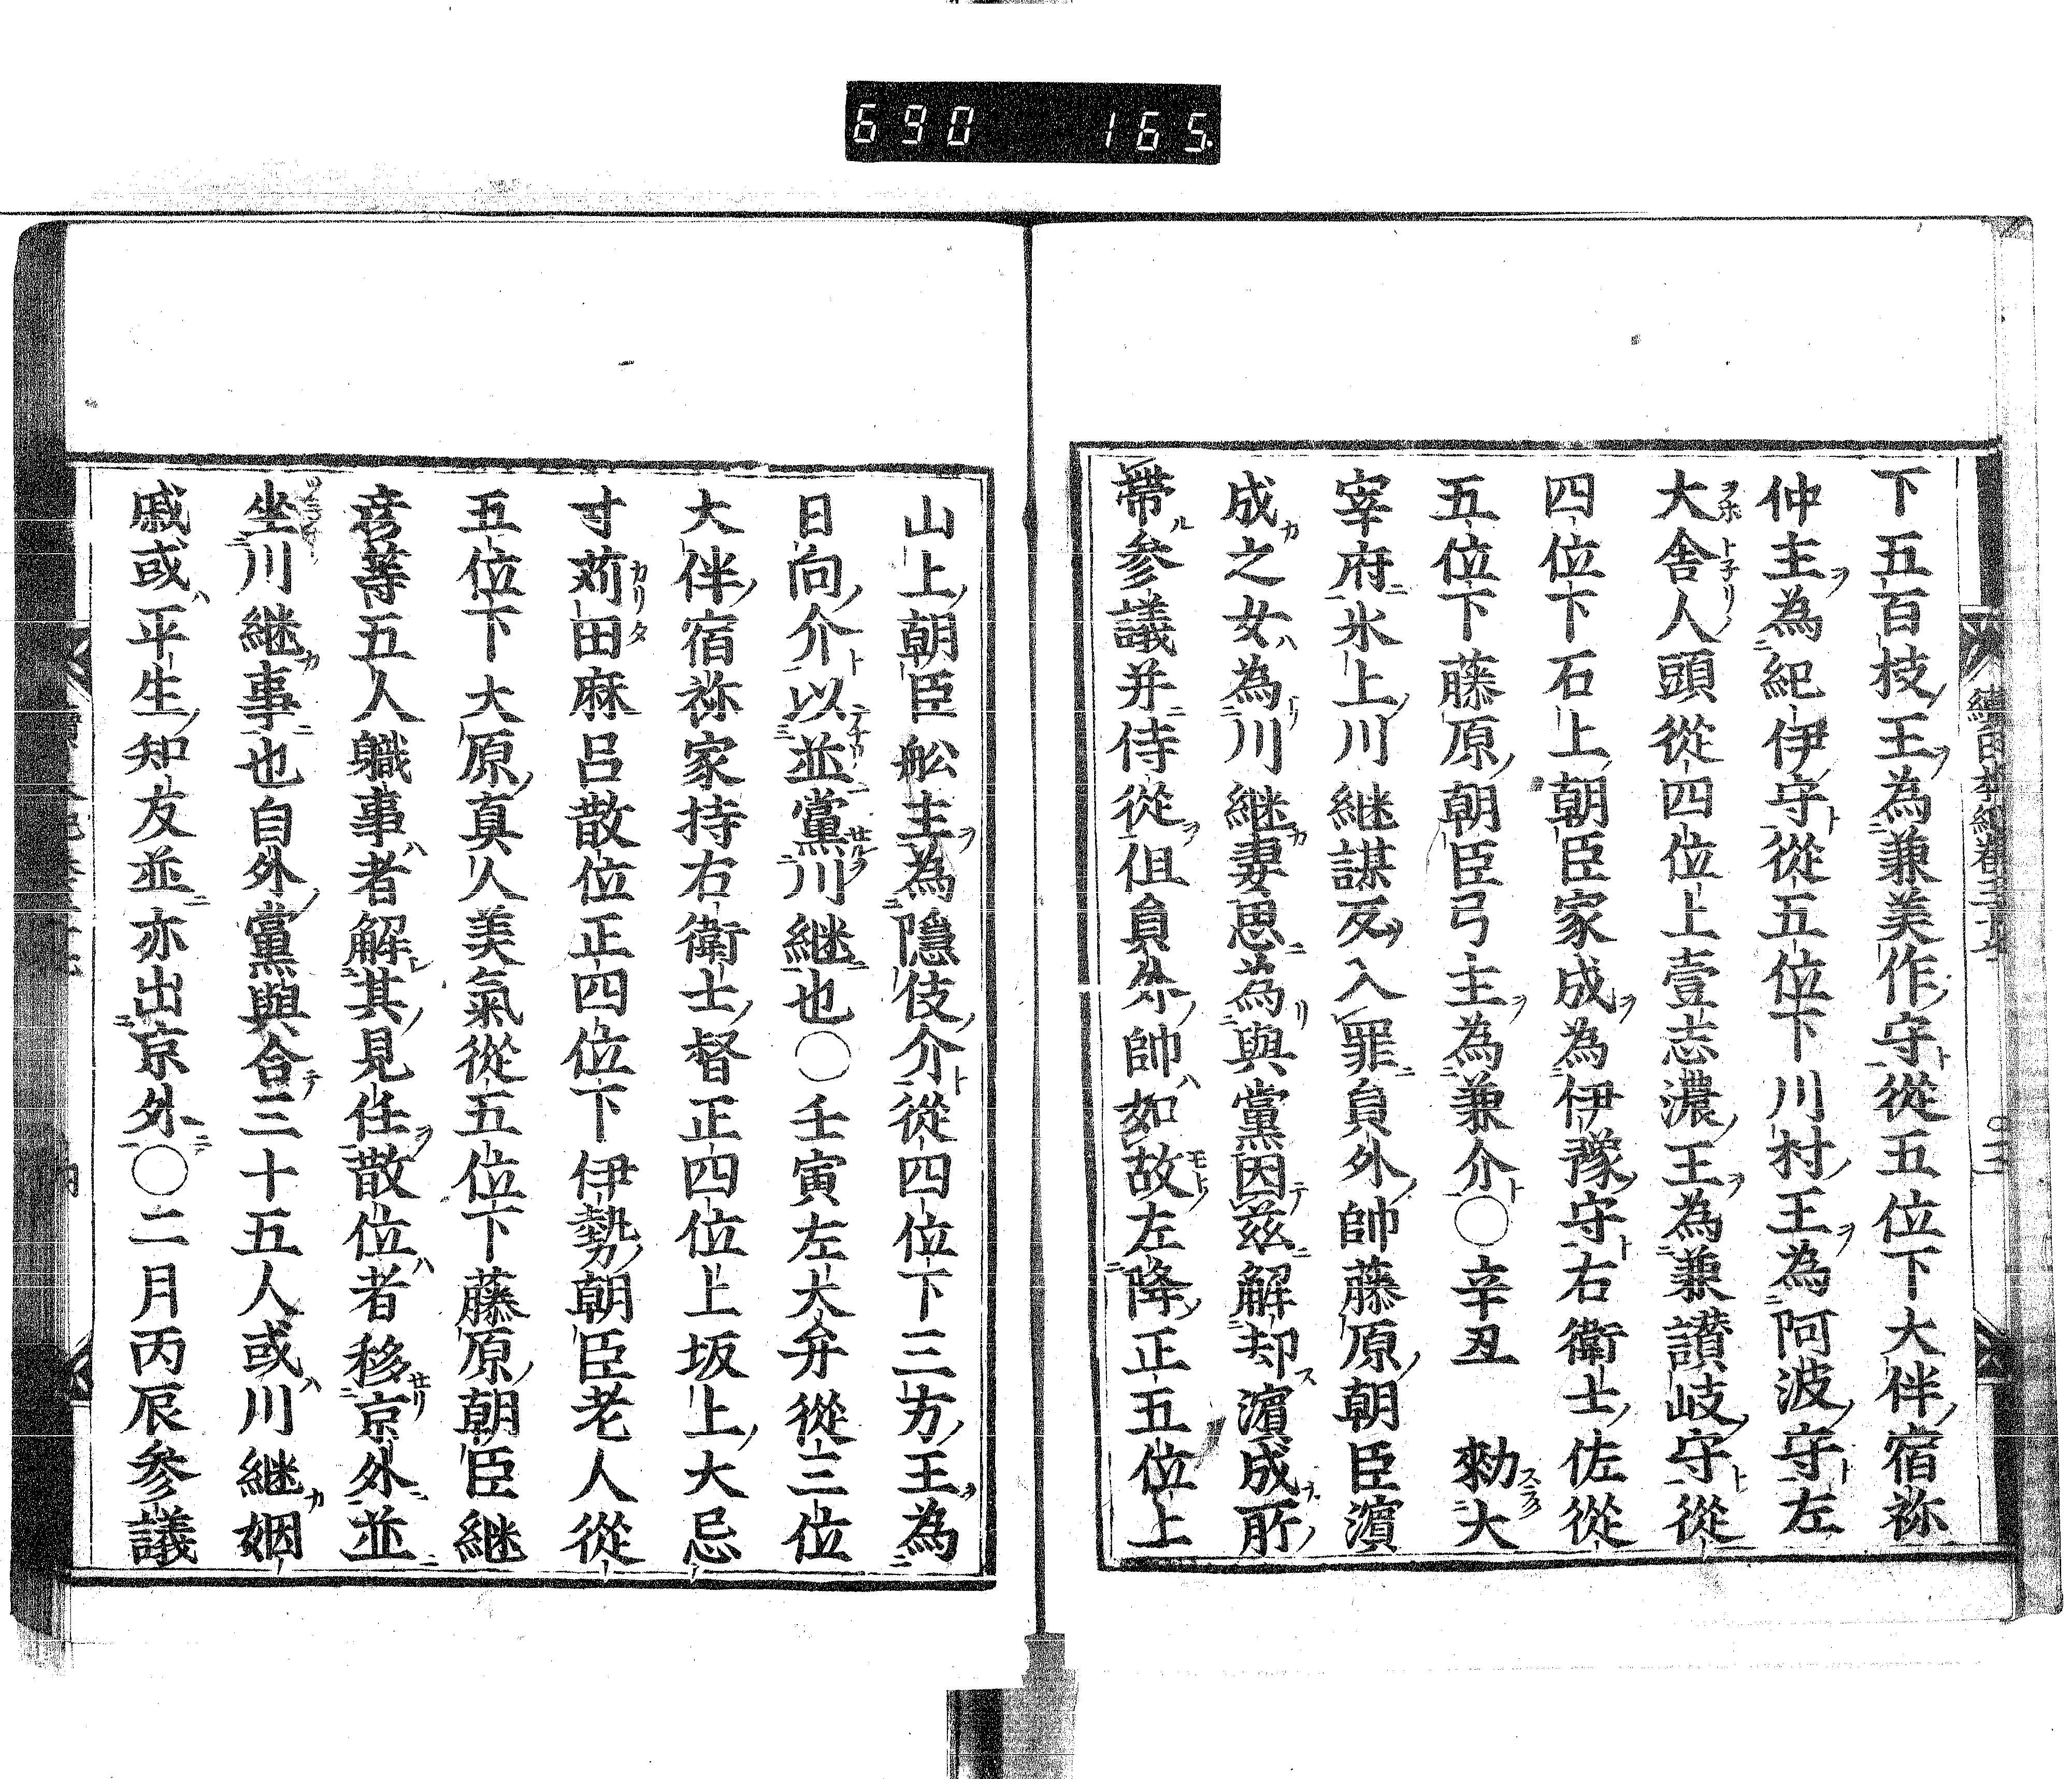 690 165.
下五百枝王為兼美作守從五位下大伴宿祢
仲主為紀伊守從五位下川村王為阿波守左
大舎人頭從四位上壹志濃王為兼讃岐守從
四位下石上朝臣家成為伊豫守右衛士佐從
五位下藤原朝臣弓主為兼介〇辛丑 勅大
宰府氷上川継謀反入罪員外帥藤原朝臣濱
成之女為川継妻思為與黨因茲解却濱成所
帶參議并侍從但員外帥如故左降正五位上
山上朝臣舩主為隱伎介從四位下三方王為
日向介以並黨川継也〇壬寅左大弁從三位
大伴宿祢家持右衛士督正四位上坂上大忌
寸苅田麻呂散位正四位下伊勢朝臣老人從
五位下大原真人美氣從五位下藤原朝臣継
彦等五人職事者解其見任散位者移京外並
坐川継事也自外黨與合三十五人或川継姻
戚或平生知友並亦出京外〇二月丙辰參議